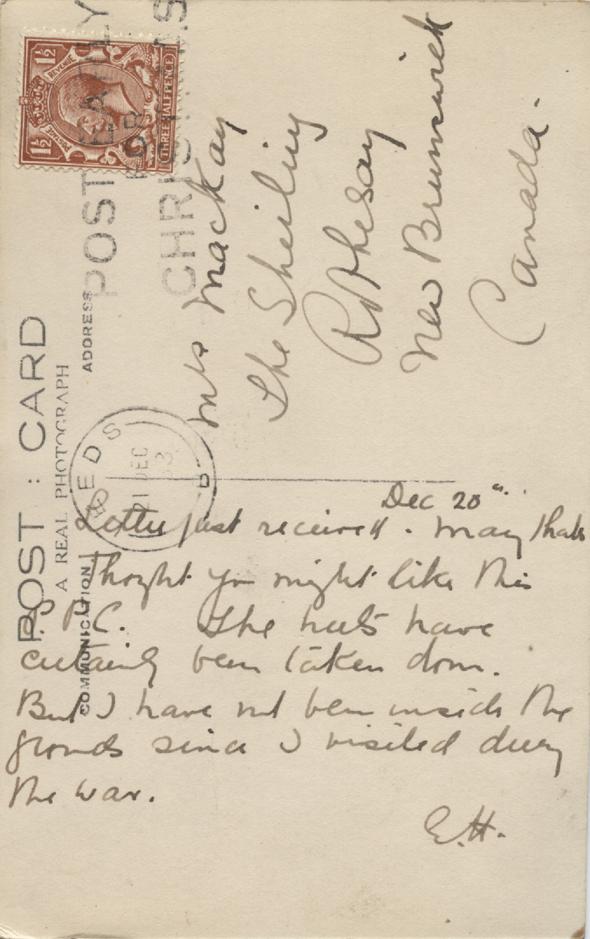 POST : CARD
A REAL PHOTOGRAPH
ADDRESS
COMMUNICATION
POSTAGE REVENUE
1½ 1½
THREE HALFPENCE
POST EARLY
FOR
CHRISTMAS
LEEDS
21 DEC
3
Mrs MacKay
The Sheiling
Rothesay
New Brunswick
Canada.
Dec 20th.
Letter just received. Many thanks
Thoght you might like this
P.P.C. The huts have
certainly been taken down.
But I have not been inside the
grounds since I visited durg
the war.
E.H.